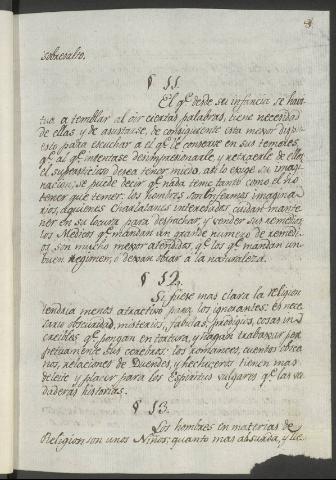 sobresalto.
§ 11
El qe. desde su infancia se habi
tua a temblar al oir ciertas palabras, tiene necesidad
de ellas y de asustarse, de consiguiente esta menos disp
uesto para escuchar a el qe. le conserve en sus temores
qe. al qe. intentase desimpresionarle, y retraerle de ellos
el supersticioso desea tener miedo, asi lo exige su imagi
nacion; se puede decir qe. nada teme tanto como el no
tener que temer. los hombres son enfermos imagina
rios, aquienes Charlatanes interesados, cuidan mante
ner en su locura para despachar, y vender sus remedios
los Medicos qe. mandan un grande numero de remedi
os, son mucho mexor atendidos, qe. los qe. mandan un
buen regimen, y dexan obrar à la naturaleza.
§ 12.
Si fuese mas clara la religion
tendria menos atractivo para los ignorantes: es nece
saria obscuridad, misterios, fabulas, prodigios, cosas in
creibles qe. pongan en tortura, y hagan trabaxar per
petuamente sus cerebros: los romances, cuentos obsce
nos, relaciones de Duendes, y hechiceros tienen mas
deleite y placer para los Espiritus vulgares qe. las ve
daderas historias.
§ 13.
Los hombres en materias de
Religion son unos Niños: quanto mas absurda, y lle